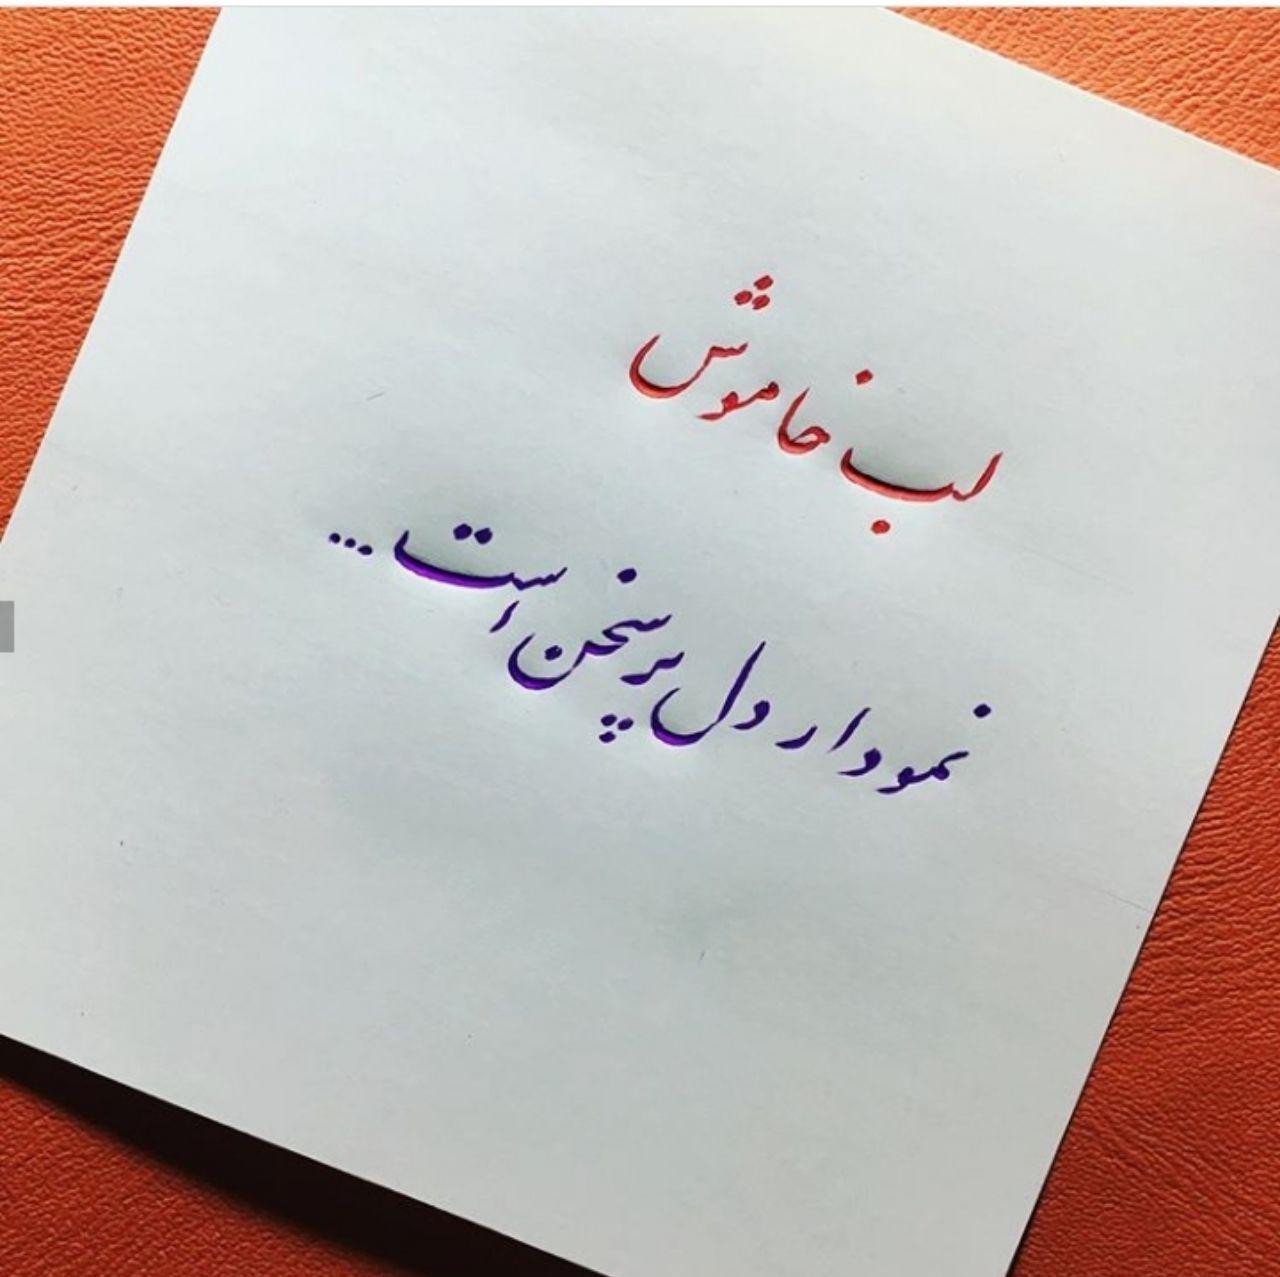 لب خاموش
نمودار دل پرسخن است...